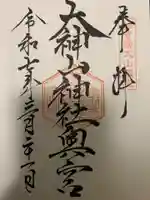 奉拝
大神山神社奥宮
令和七年三月二十一日